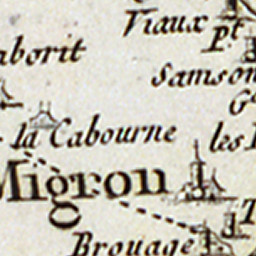 Viaux
pt
aborit
Samson
la Cabourne
les
Migron
Brouage